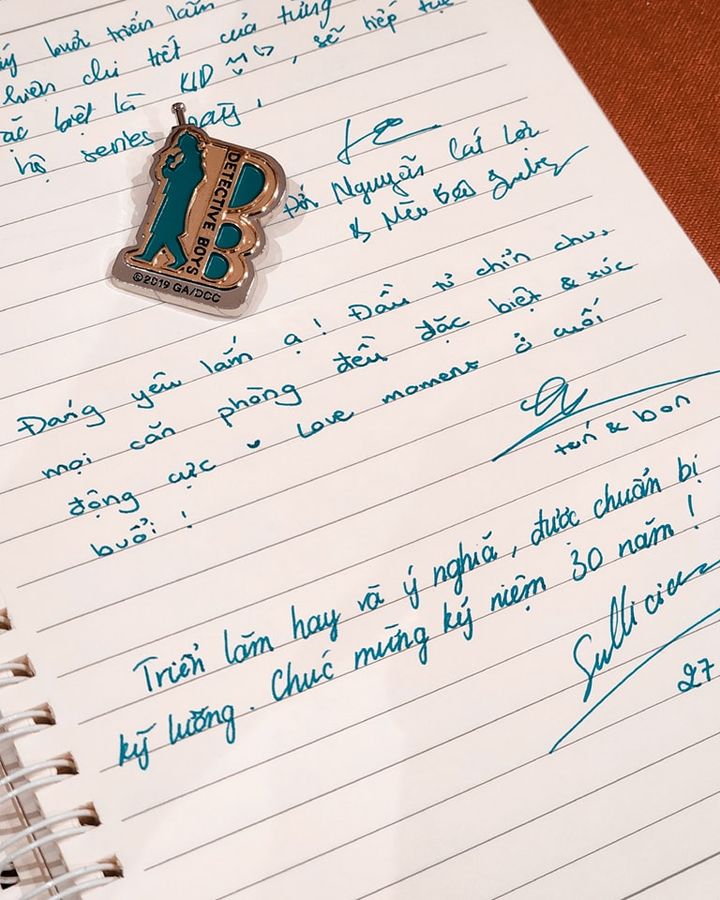 buổi triển lãm
chi tiết của từng
biệt là KID , sẽ tiếp tục
hộ series này.
DETECTIVE BOYS
©2019 GA/DCC
Nguyễn Cát Lợi
& Mèo Béo
Đáng yêu lắm ạ! Đầu tư chỉn chu,
mọi căn phòng đều đặc biệt & xúc
động cực Love moment ở cuối
buổi!
& bon
Triển lãm hay và ý nghĩa, được chuẩn bị
kỹ lưỡng. Chúc mừng kỷ niệm 30 năm!
27